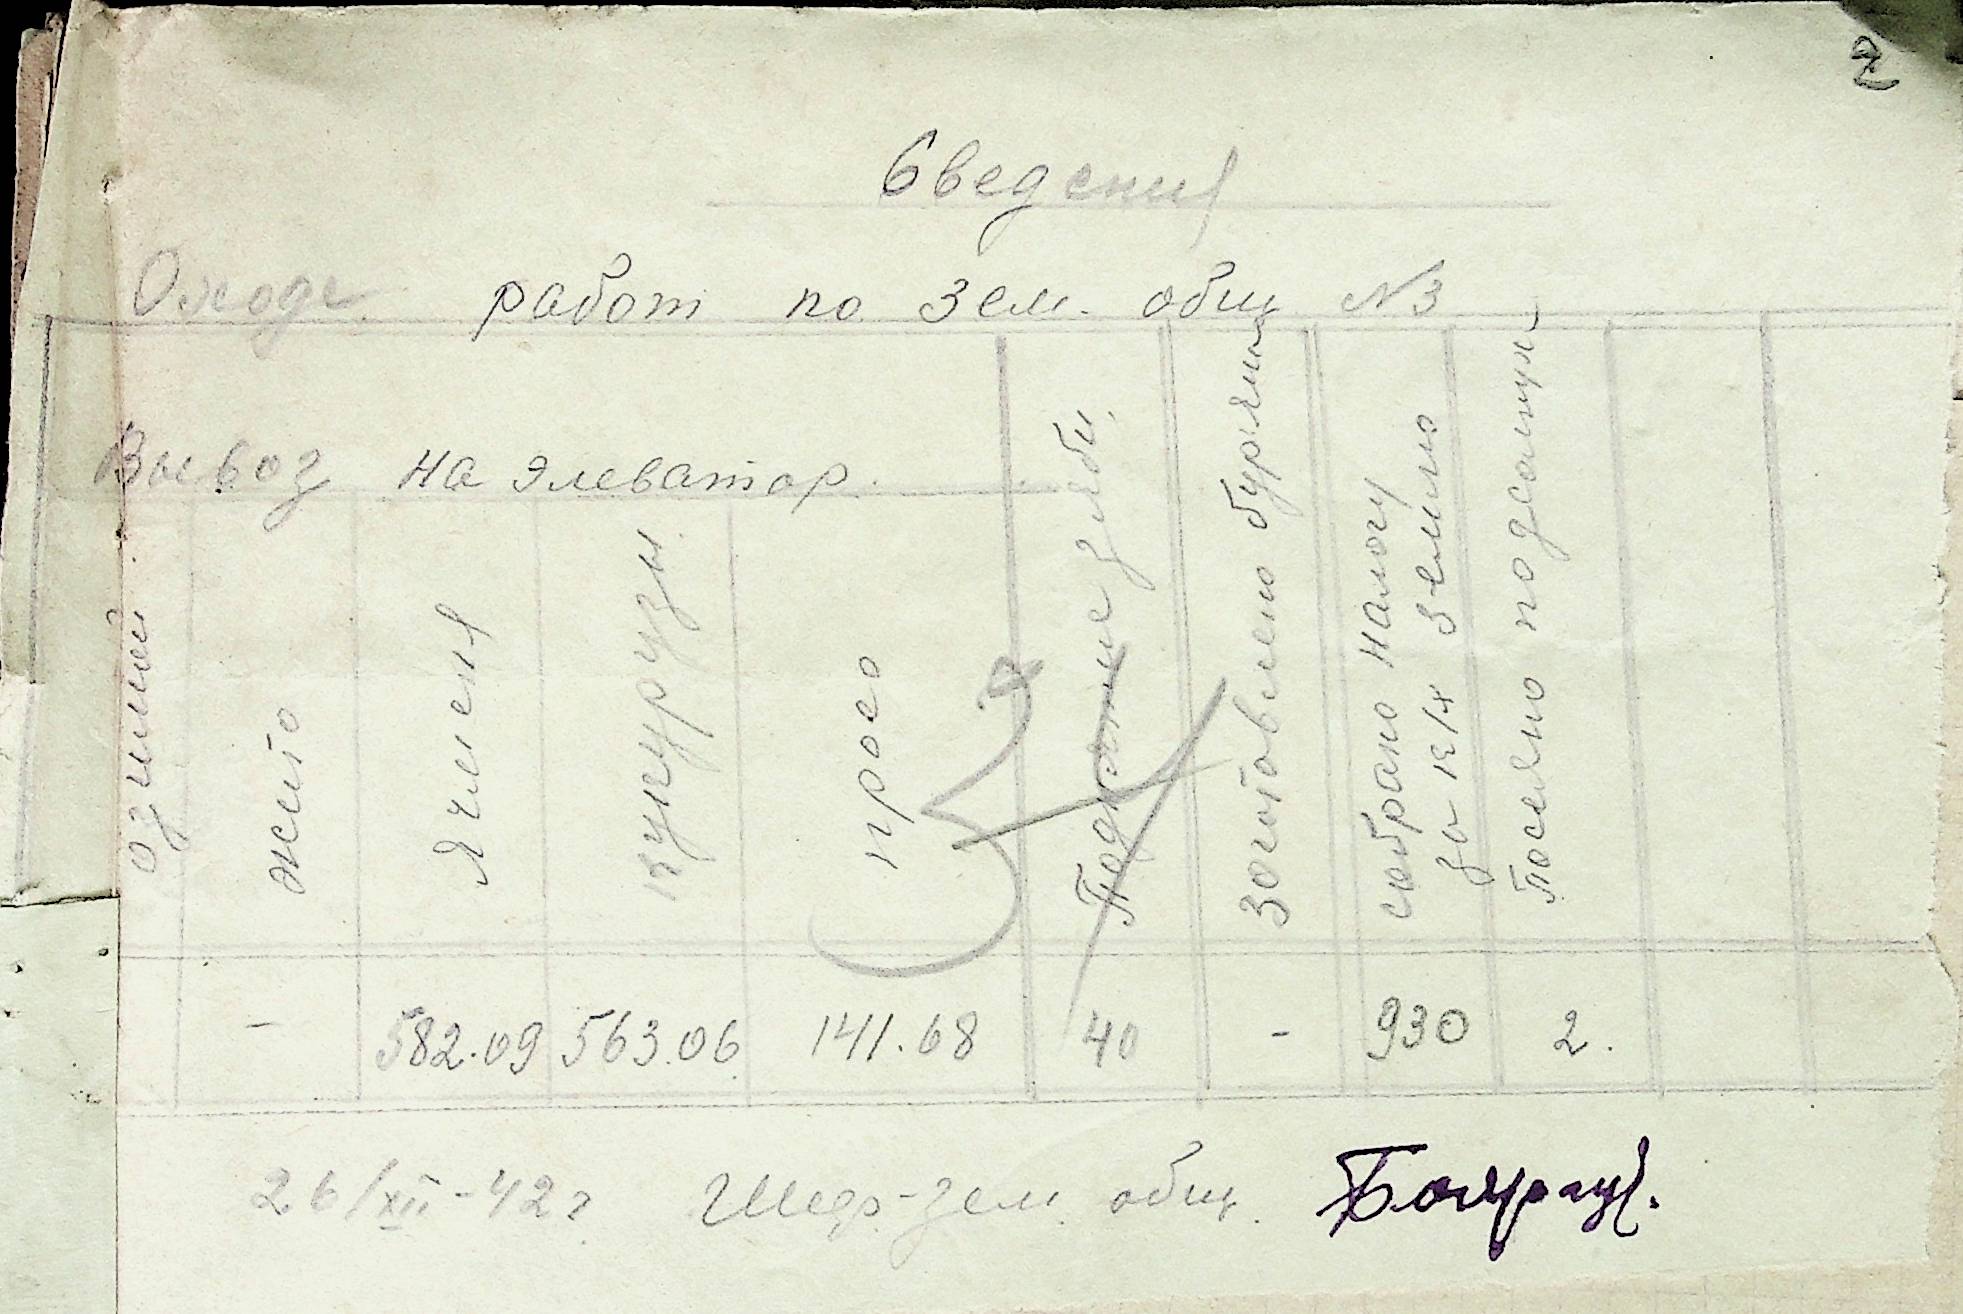 2
Сведения
О ходе работ по Зем. общ №3
Вывоз на элеватор.
озимой
жито
Ячменя
кукурузы
просо
Поднятие зяби.
Заготовлено бурьяна
собрано налогу
за
Посеяно подсолнух
- 582.09 563.06 141.68 40 - 930 2.
26/XII-42г зем. общ.